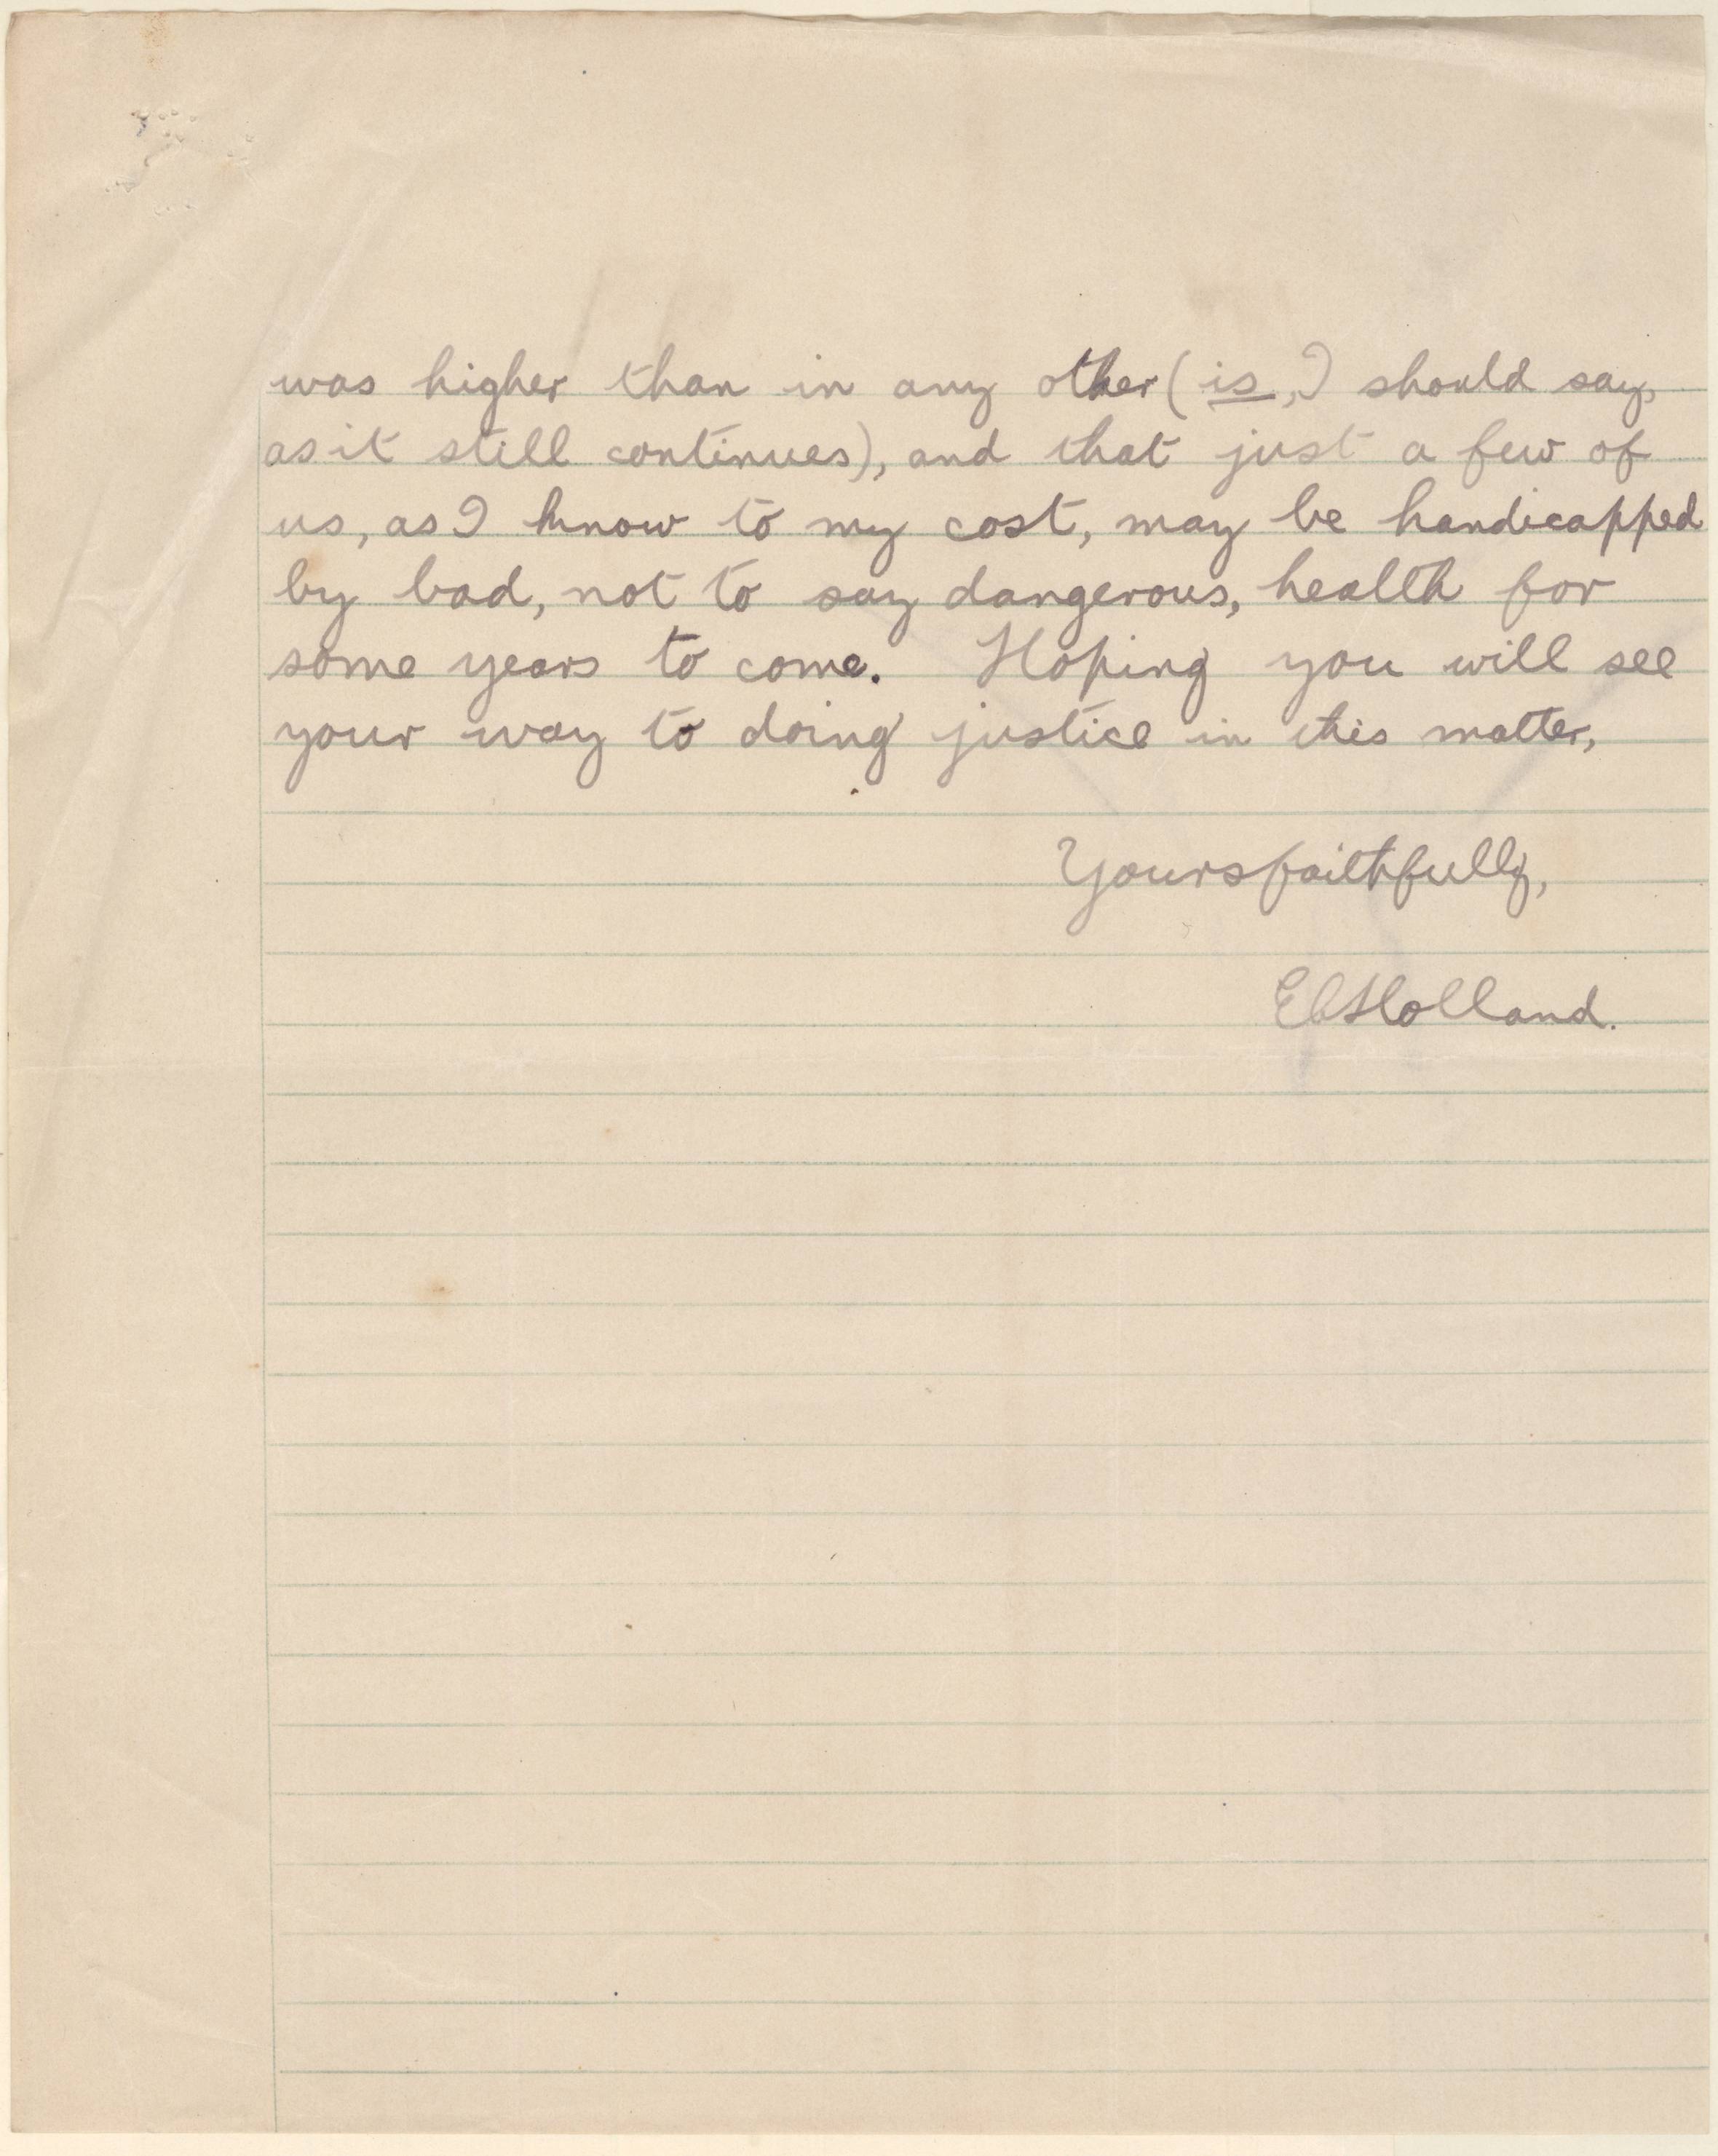 was higher than in any other (is, I should say,
as it still continues), and that just a few of
us, as I know to my cost, may be handicapped
by bad, not to say dangerous, health for
some years to come. Hoping you will see
your way to doing justice in this matter,
Yours faithfully,
E C Holland.